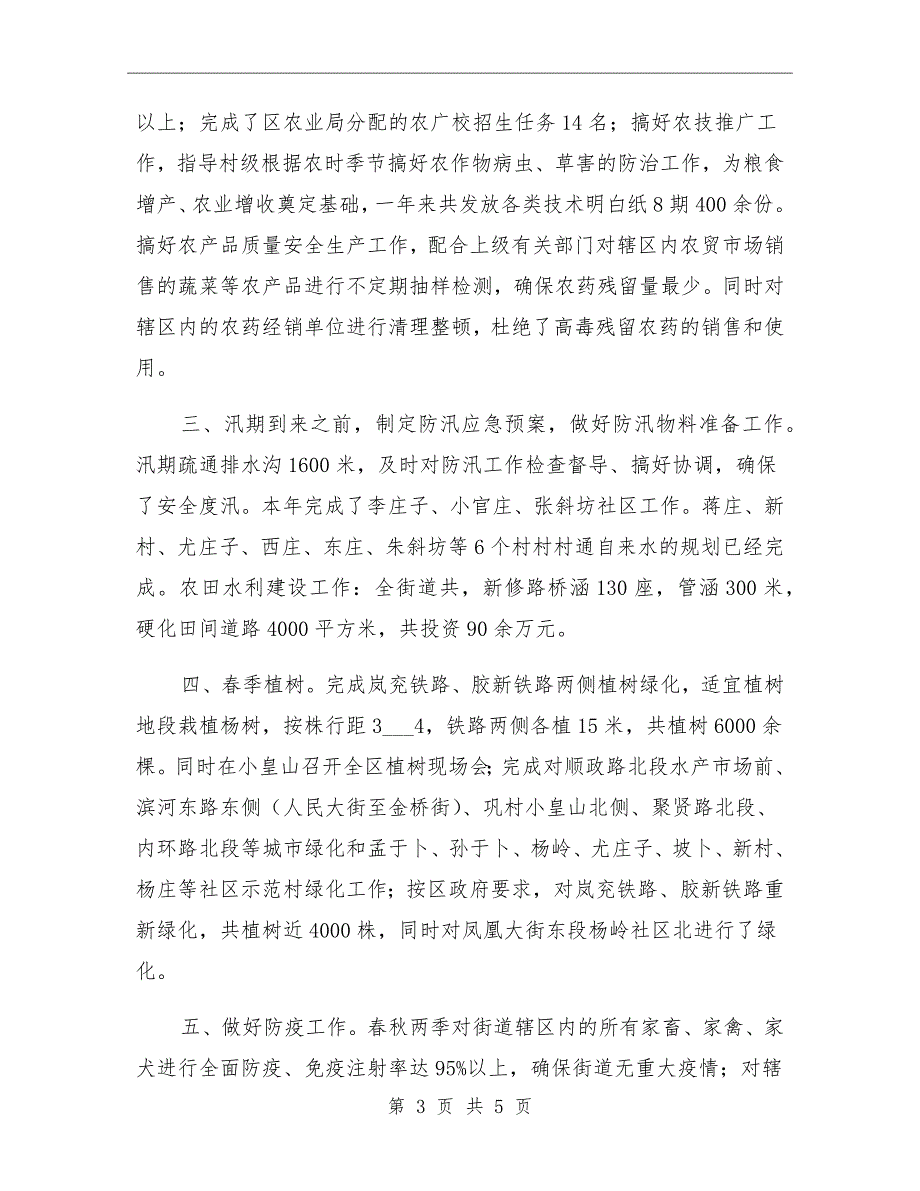 以上；完成了区农业局分配的农广校招生任务 14 名；搞好农技推广工
作，指导村级根据农时季节搞好农作物病虫、草害的防治工作，为粮食
增产、农业增收奠定基础，一年来共发放各类技术明白纸 8 期 400 余份。
搞好农产品质量安全生产工作，配合上级有关部门对辖区内农贸市场销
售的蔬菜等农产品进行不定期抽样检测，确保农药残留量最少。同时对
辖区内的农药经销单位进行清理整顿，杜绝了高毒残留农药的销售和使
用。
三、汛期到来之前，制定防汛应急预案，做好防汛物料准备工作。
汛期疏通排水沟 1600 米，及时对防汛工作检查督导、搞好协调，确保
了安全度汛。本年完成了李庄子、小官庄、张斜坊社区工作。蒋庄、新
村、尤庄子、西庄、东庄、朱斜坊等 6 个村村村通自来水的规划已经完
成。农田水利建设工作：全街道共，新修路桥涵 130 座，管涵 300 米，
硬化田间道路 4000 平方米，共投资 90 余万元。
四、春季植树。完成岚兖铁路、胶新铁路两侧植树绿化，适宜植树
地段栽植杨树，按株行距 3___4，铁路两侧各植 15 米，共植树 6000 余
棵。同时在小皇山召开全区植树现场会；完成对顺政路北段水产市场前、
滨河东路东侧（人民大街至金桥街）、巩村小皇山北侧、聚贤路北段、
内环路北段等城市绿化和孟于卜、孙于卜、杨岭、尤庄子、坡卜、新村、
杨庄等社区示范村绿化工作；按区政府要求，对岚兖铁路、胶新铁路重
新绿化，共植树近 4000 株，同时对凤凰大街东段杨岭社区北进行了绿
化。
五、做好防疫工作。春秋两季对街道辖区内的所有家畜、家禽、家
犬进行全面防疫、免疫注射率达 95%以上，确保街道无重大疫情；对辖
第 3 页 共 5 页